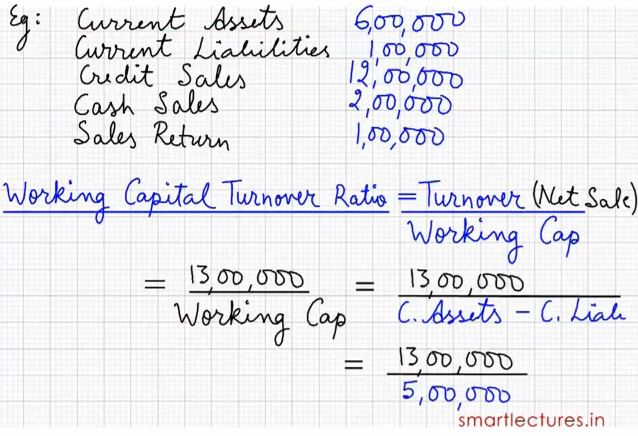 Eg: Current Assets 6,00,000
Current Liabilities 1,00,000
Credit Sales 12,00,000
Cash Sales 2,00,000
Sales Return 1,00,000
Working Capital Turnover Ratio = Turnover (Net Sale)
Working Cap
= 13,00,000 = 13,00,000
Working Cap C. Assets - C. Liab
= 13,00,000
5,00,000
smartlectures.in